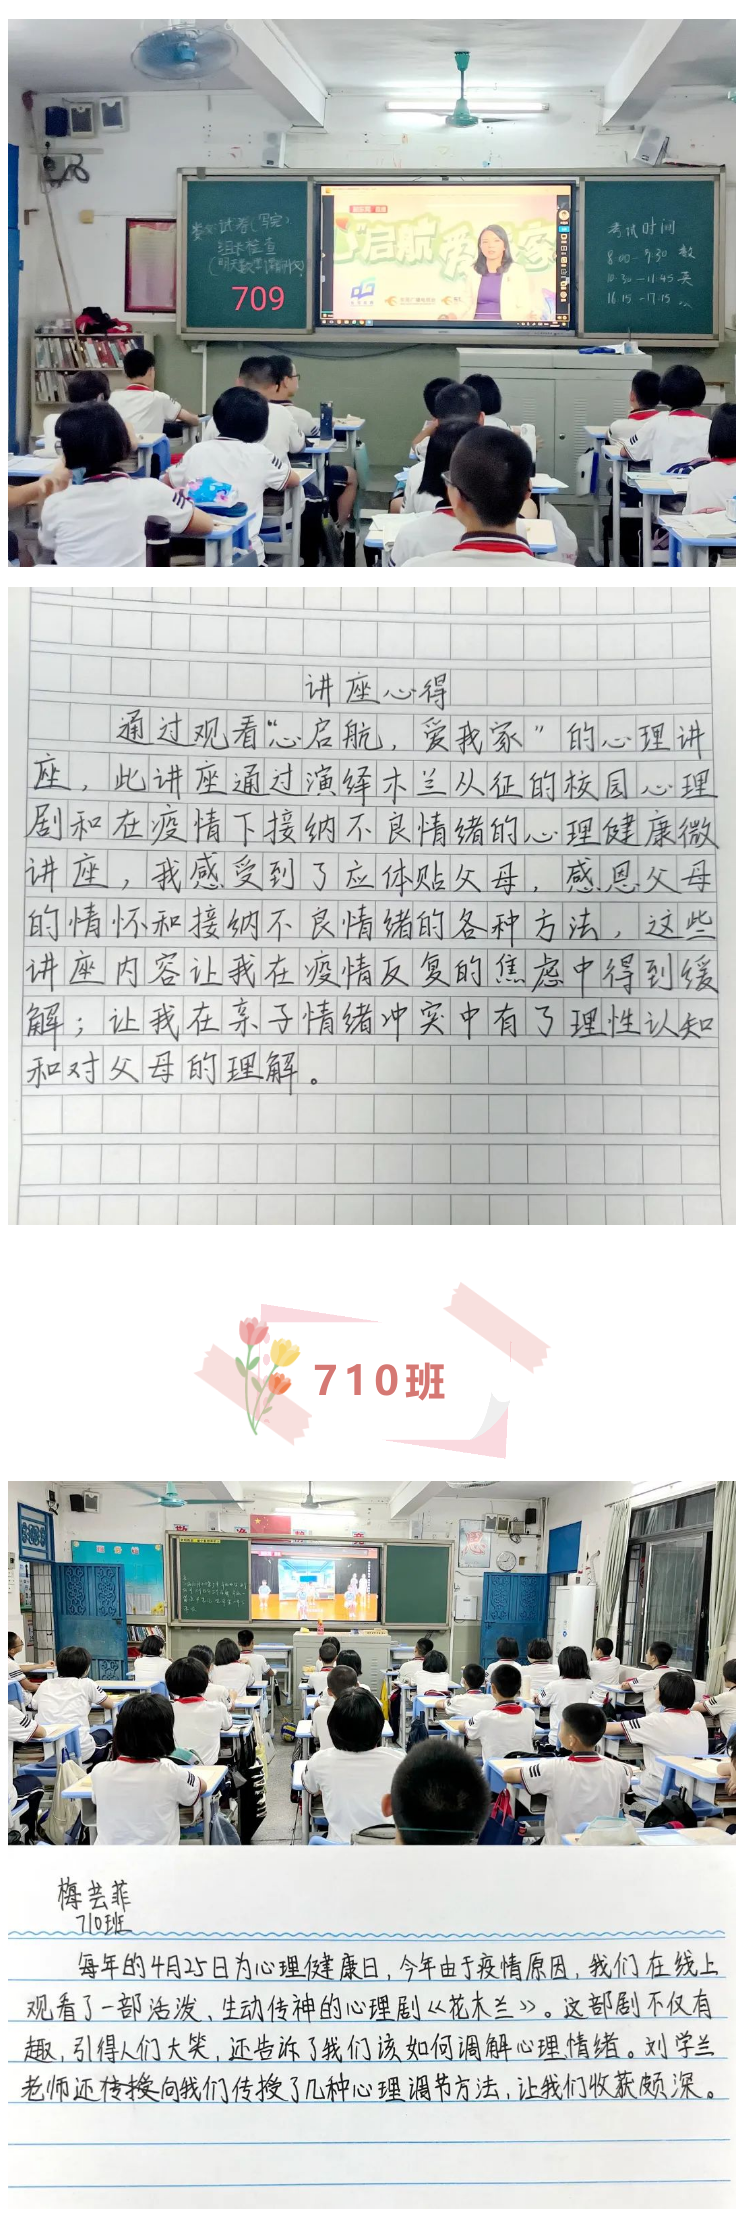 试卷(写完)
组长检查
709
启航 爱 家
考试时间
8:00—9:30 数
10:30—11:45 英
16:15—17:15
讲座心得
通过观看“心启航，爱我家”的心理讲
座，此讲座通过演绎木兰从征的校园心理
剧和在疫情下接纳不良情绪的心理健康微
讲座，我感受到了应体贴父母，感恩父母
的情怀和接纳不良情绪的各种方法，这些
讲座内容让我在疫情反复的焦虑中得到缓
解；让我在亲子情绪冲突中有了理性认知
和对父母的理解。
710班
梅芸菲
710班
每年的4月25日为心理健康日，今年由于疫情原因，我们在线上
观看了一部活泼、生动传神的心理剧《花木兰》。这部剧不仅有
趣，引得人们大笑，还告诉了我们该如何调解心理情绪。刘学兰
老师还向我们传授了几种心理调节方法，让我们收获颇深。